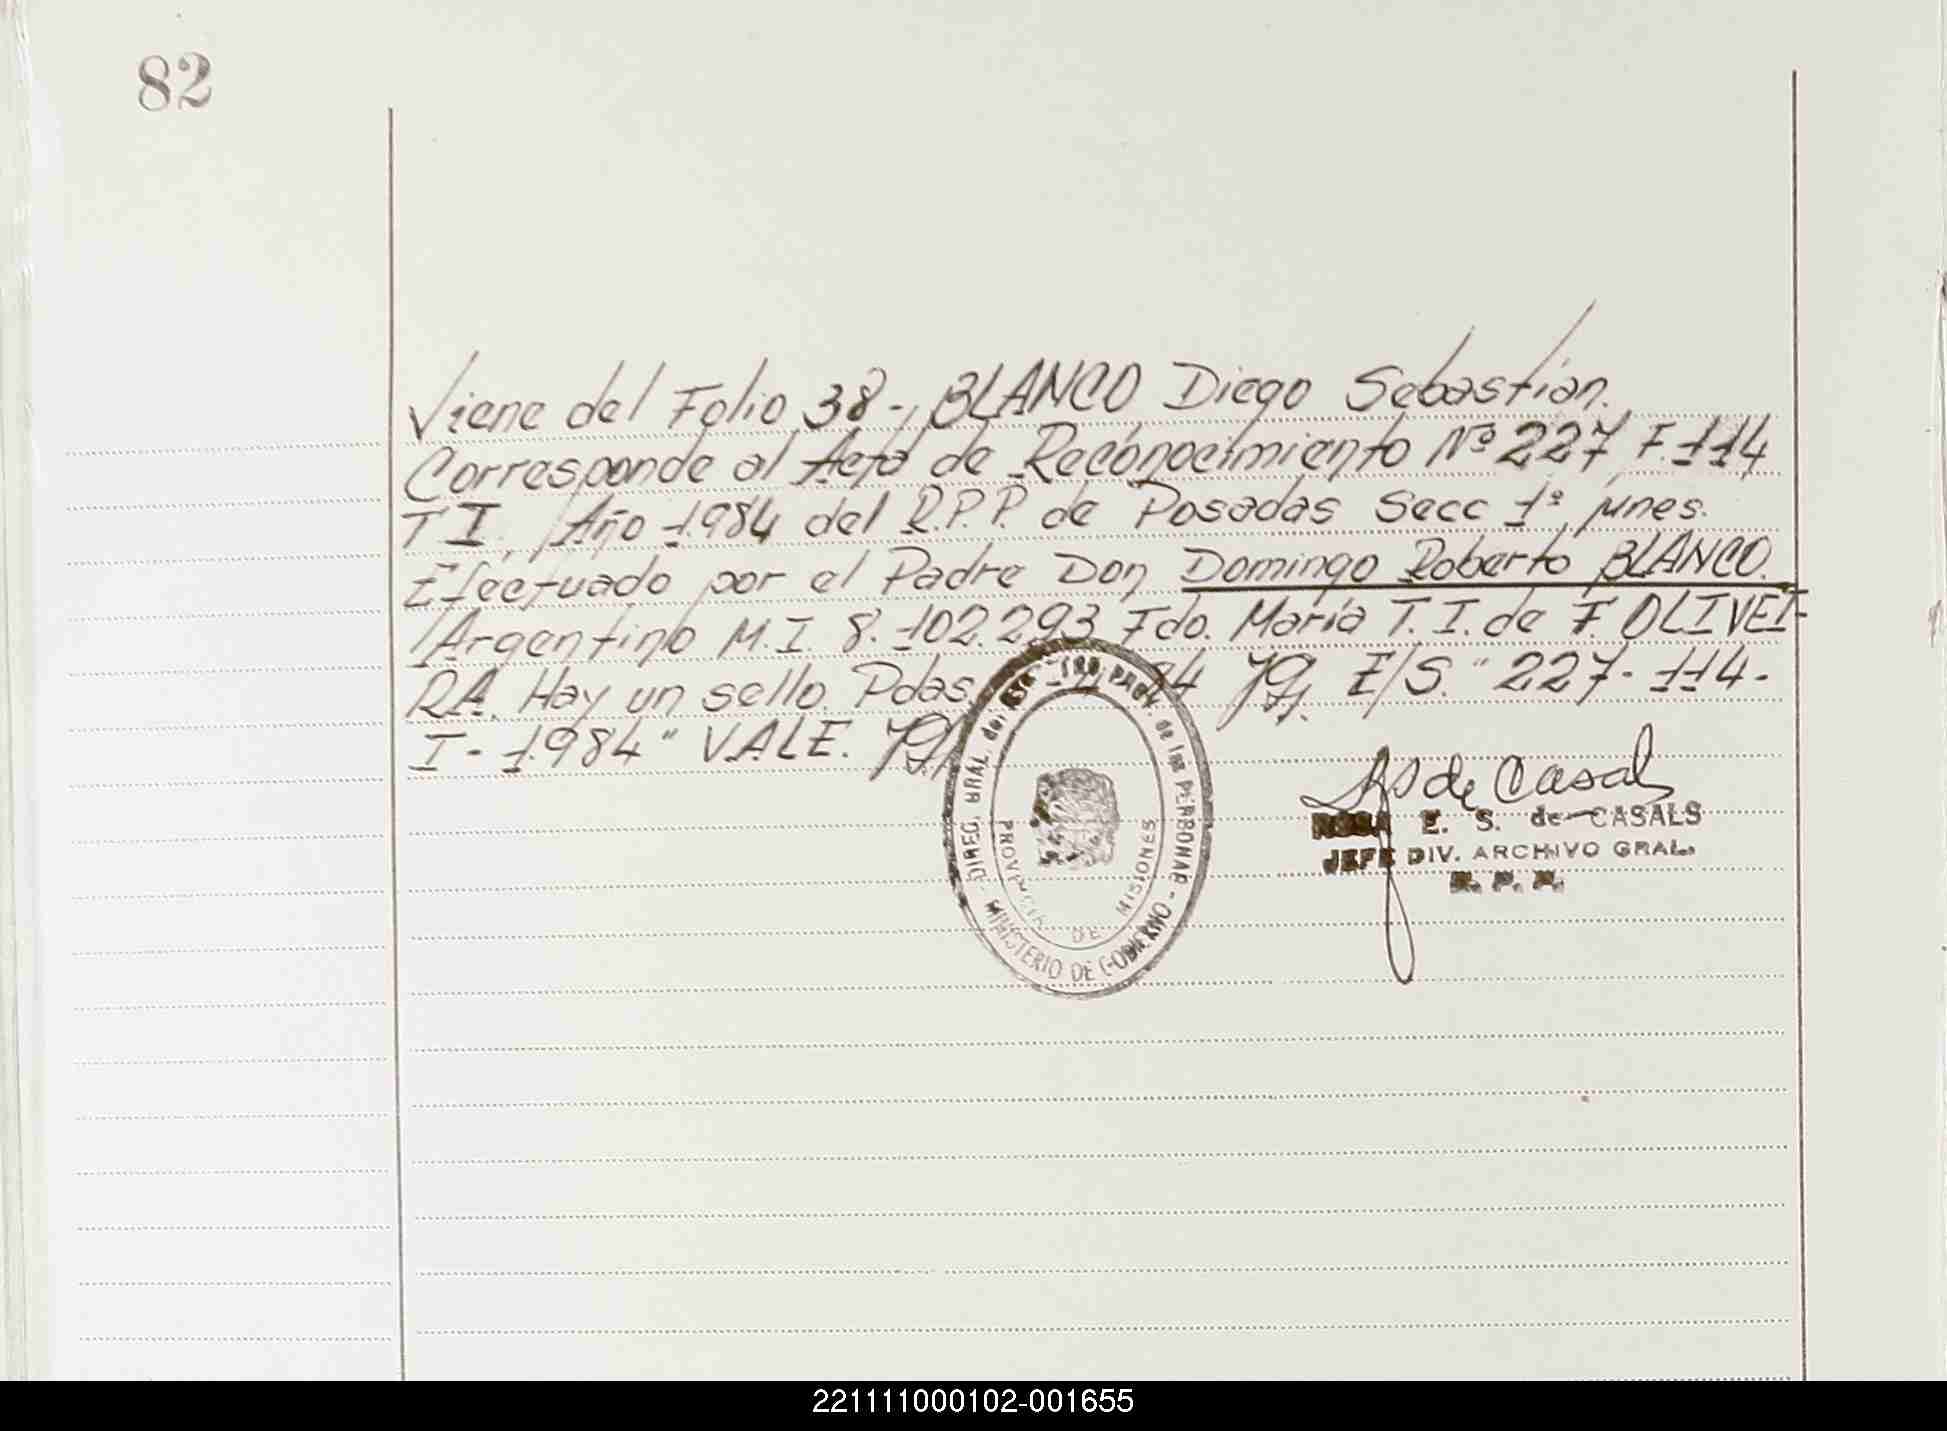 82
Viene del Folio 38-, BLANCO Diego Sebastían.
Corresponde al Acta de Reconocimiento Nº 227, F. 114
T I, Año 1.984 del R.P.P. de Posadas Secc 1º, Mnes.
Efectuado por el Padre Don Domingo Roberto BLANCO.
Argentino M.I. 8.102.293 Fdo. María T. I. de F. OLIVEI-
RA. Hay un sello. Pdas, 84 E/S. "227-114-
I-1.984" VALE.
de Casals
ROSA E. S. de CASALS
JEFE DIV. ARCHIVO GRAL.
R. P. P.
DIREC. GRAL. del PROV. de las PERSONAS - MINISTERIO DE GOBIERNO -
PROVINCIA DE MISIONES
221111000102-001655